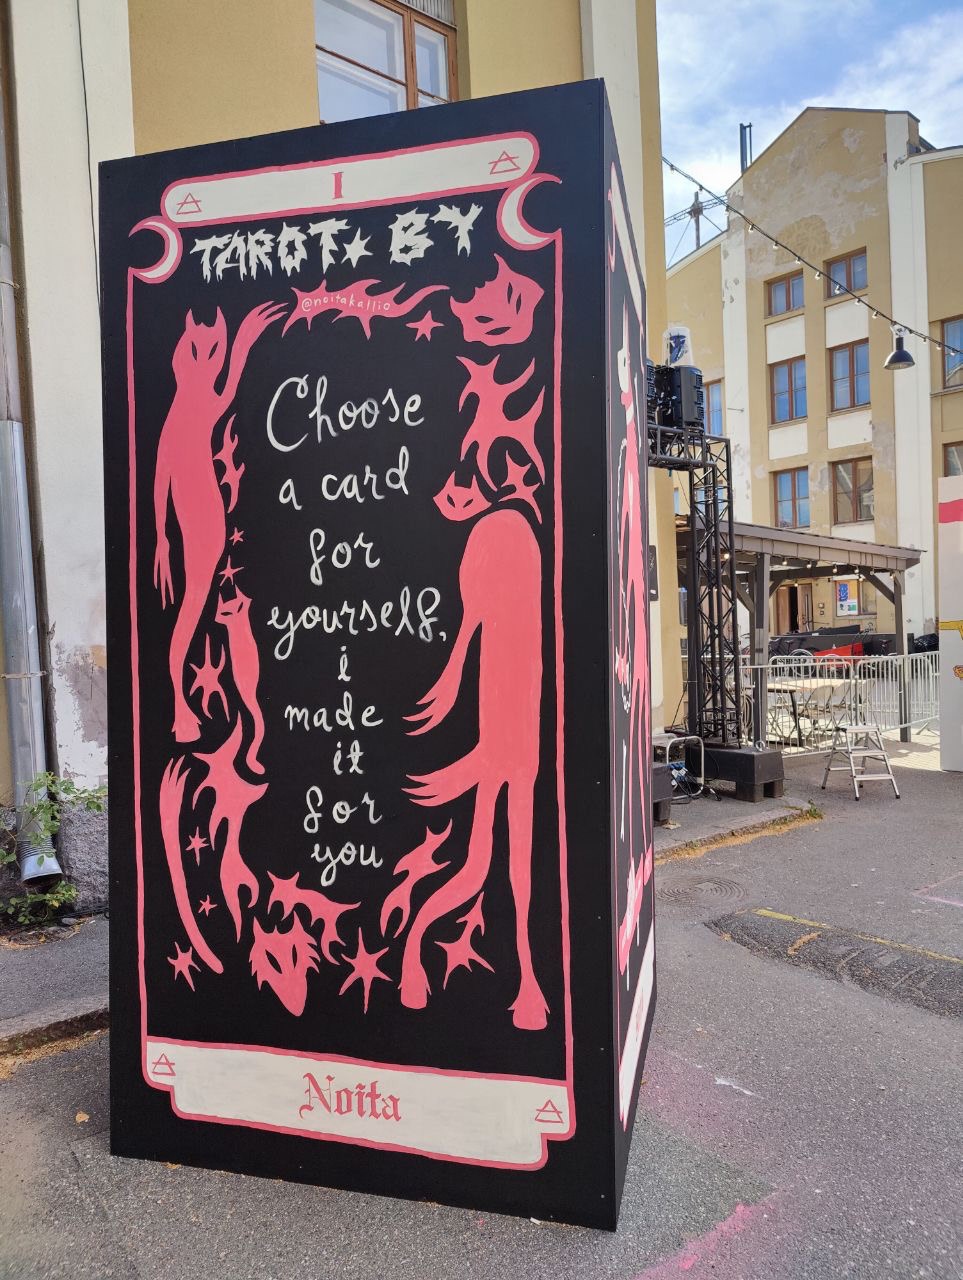 I
TAROT★BY
@noitakallio
Choose
a card
for
yourself,
i
made
it
for
you
Noita